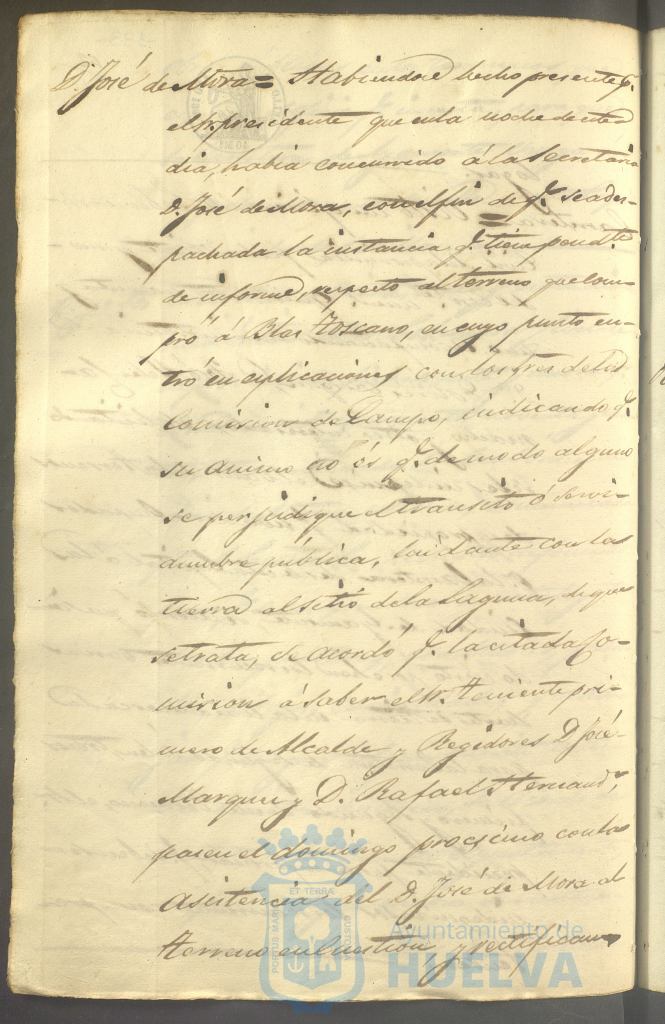 D. José de Mora = Habiendose hecho presente p.r
el Sr. presidente que en la noche de este
dia, habia concurrido á la Secretaria
D. José de Mora, con el fin de q.e sea des-
pachada la instancia q.e tiene pend.te
de informe, respecto al terreno que com-
pró á Blas Toscano, en cuyo punto en-
tró en esplicaciones con los Sres de la
Comision de Campo, indicando q.e
su animo no és q.e de modo alguno
se perjudique el transito ó servi-
dumbre pública, lindante con la
tierra al sitio de la Laguna, de que
se trata; se acordó q.e la citada Co-
mision á saber el Sr. Teniente pri-
mero de Alcalde y Regidores D. José
Marquez y D. Rafael Hernand.z,
pasen el domingo procsimo con la
asistencia del D. José de Mora al
terreno en cuestion y rectifican
PORTUS MARIS ET TERRAE CUSTODIA
Ayuntamiento de
HUELVA